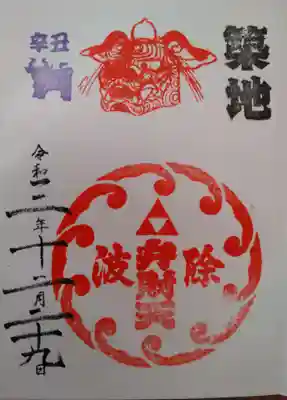 築地
辛丑
波除
弁財天
令和二年十二月二十九日